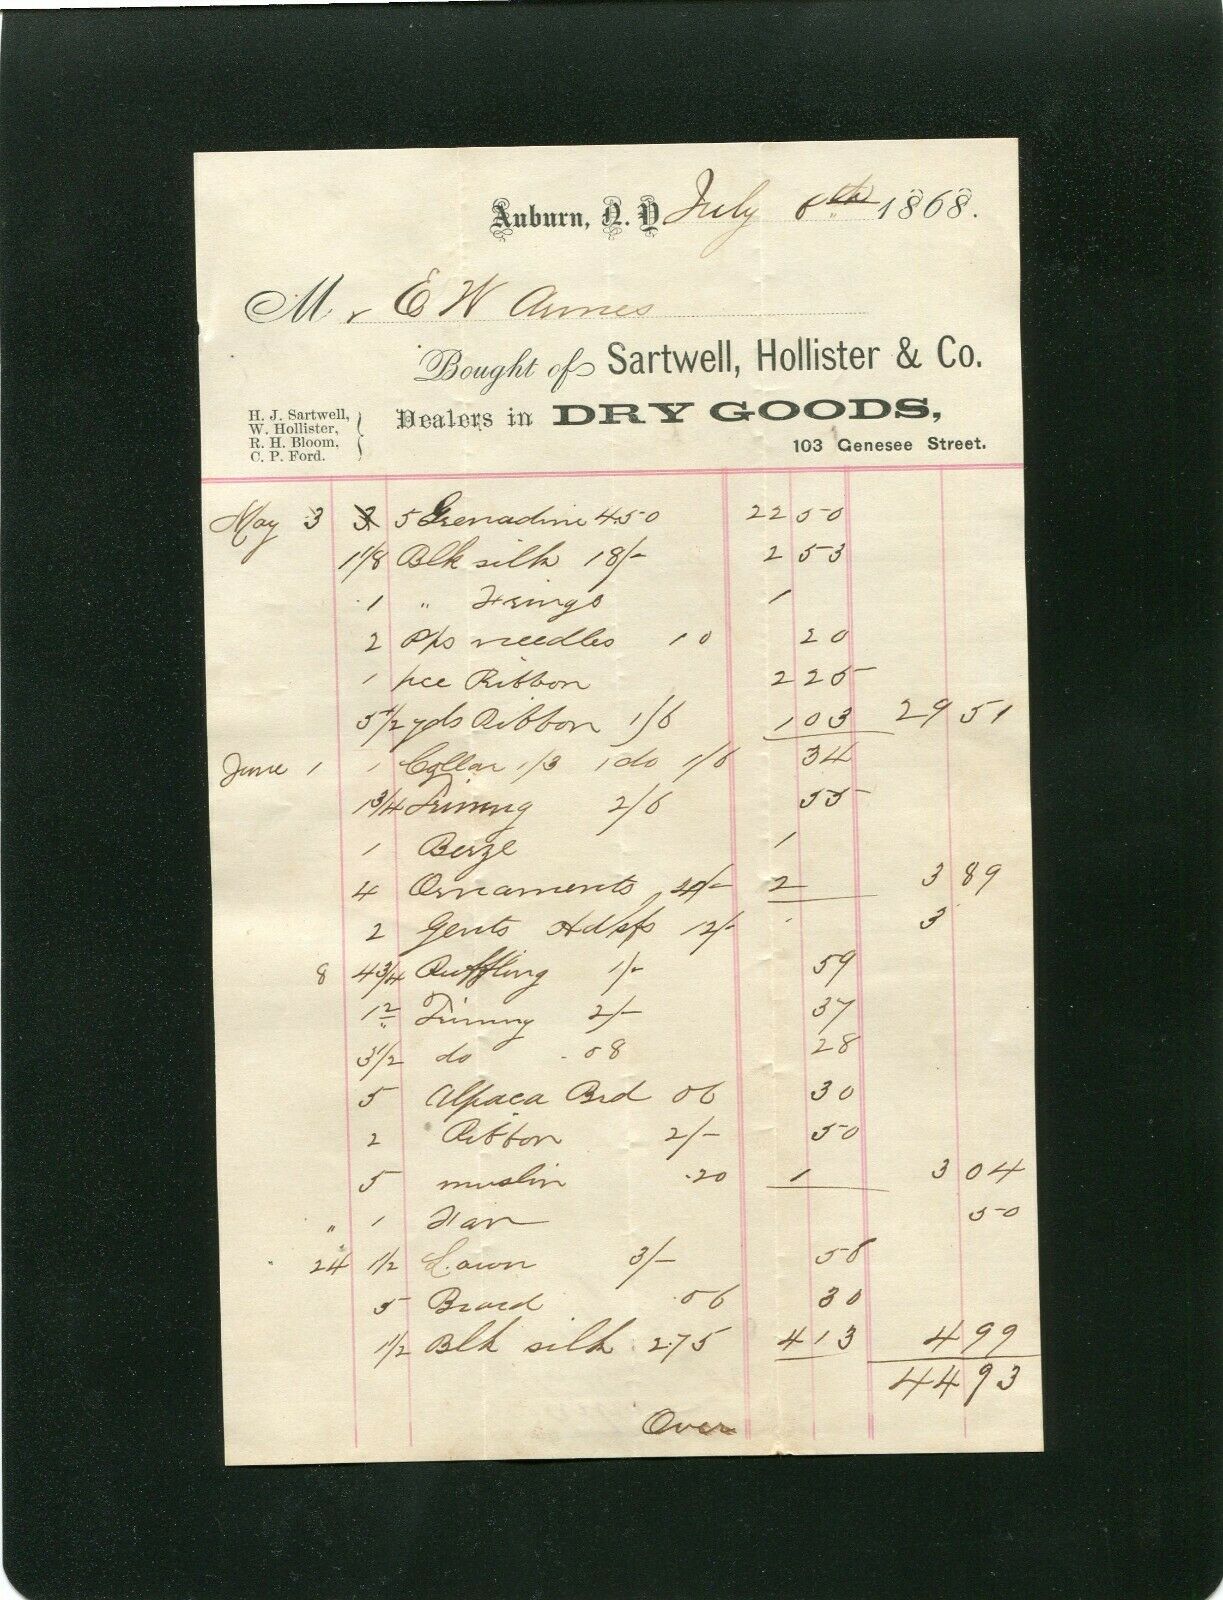 Auburn, N. Y July 6th 1868.
Mr E W Armes
Bought of Sartwell, Hollister & Co.
H. J. Sartwell,
W. Hollister,
R. H. Bloom,
C. P. Ford.
Dealers in DRY GOODS,
103 Genesee Street.
May 3 5 Grenadine 450 22 50
1 1/8 Blk silk 18/- 2 53
1 " Frings 1
2 P/s needles 10 20
1 pce Ribbon 2 25
5 1/2 yds Ribbon 1/6 1 03 29 51
June 1 1 Collar 1/3 1 do 1/6 34
1 3/4 Trimng 2/6 55
1 Berze 1
4 Ornaments 4/- 2 3 89
2 Gents Hdkfs 12/- 3
8 4 3/4 Ruffling 1/- 59
1 2 Trimng 2/- 37
3 1/2 do .08 28
5 Alpaca Brd 06 30
2 Ribbon 2/- 50
5 muslin .20 1 3 04
" 1 Fan 50
24 1/2 Lawn 3/- 56
5 Braid .06 30
1 1/2 Blk silk 2.75 4 13 4 99
44 93
Over